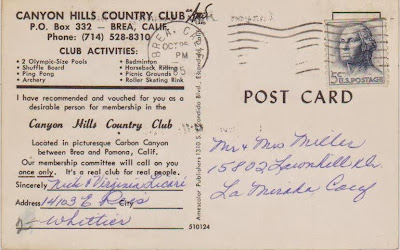 CANYON HILLS COUNTRY CLUB
P.O. Box 332 — BREA, CALIF.
Phone: (714) 528-8310
CLUB ACTIVITIES:
• 2 Olympic-Size Pools • Badminton
• Shuffle Board • Horseback Riding
• Ping Pong • Picnic Grounds
• Archery • Roller Skating Rink
I have recommended and vouched for you as a
desirable person for membership in the
Canyon Hills Country Club
Located in picturesque Carbon Canyon
between Brea and Pomona, Calif.
Our membership committee will call on you
once only. It's a real club for real people.
Sincerely Nick & Virginia Licari
Address 14103 E Reys
Whittier
BREA, CA
OCT 25
PM
5¢ U.S. POSTAGE
POST CARD
Mr & Mrs Miller
15802 Lawnhill Dr.
La Mirada Calif
510124